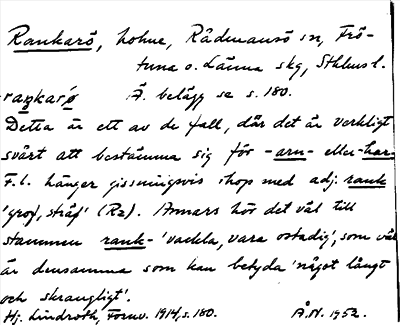 Rankarö, holme, Rådmansö sn, Frö-
tuna o. Länna skg, Sthlms l.
raŋkarö Ä. belägg se s. 180.
Detta är ett av de fall, där det är verkligt
svårt att bestämma sig för -arn- eller -har-
F.l. hänger gissningsvis ihop med adj. rank
'grov, stråf' (Rz). Annars hör det väl till
stammen rank- 'vackla, vara ostadig', som väl
är densamma som kan betyda 'något långt
och skrangligt'.
Hj. Lindroth, Fornv. 1914, s. 180. Å.N. 1952.